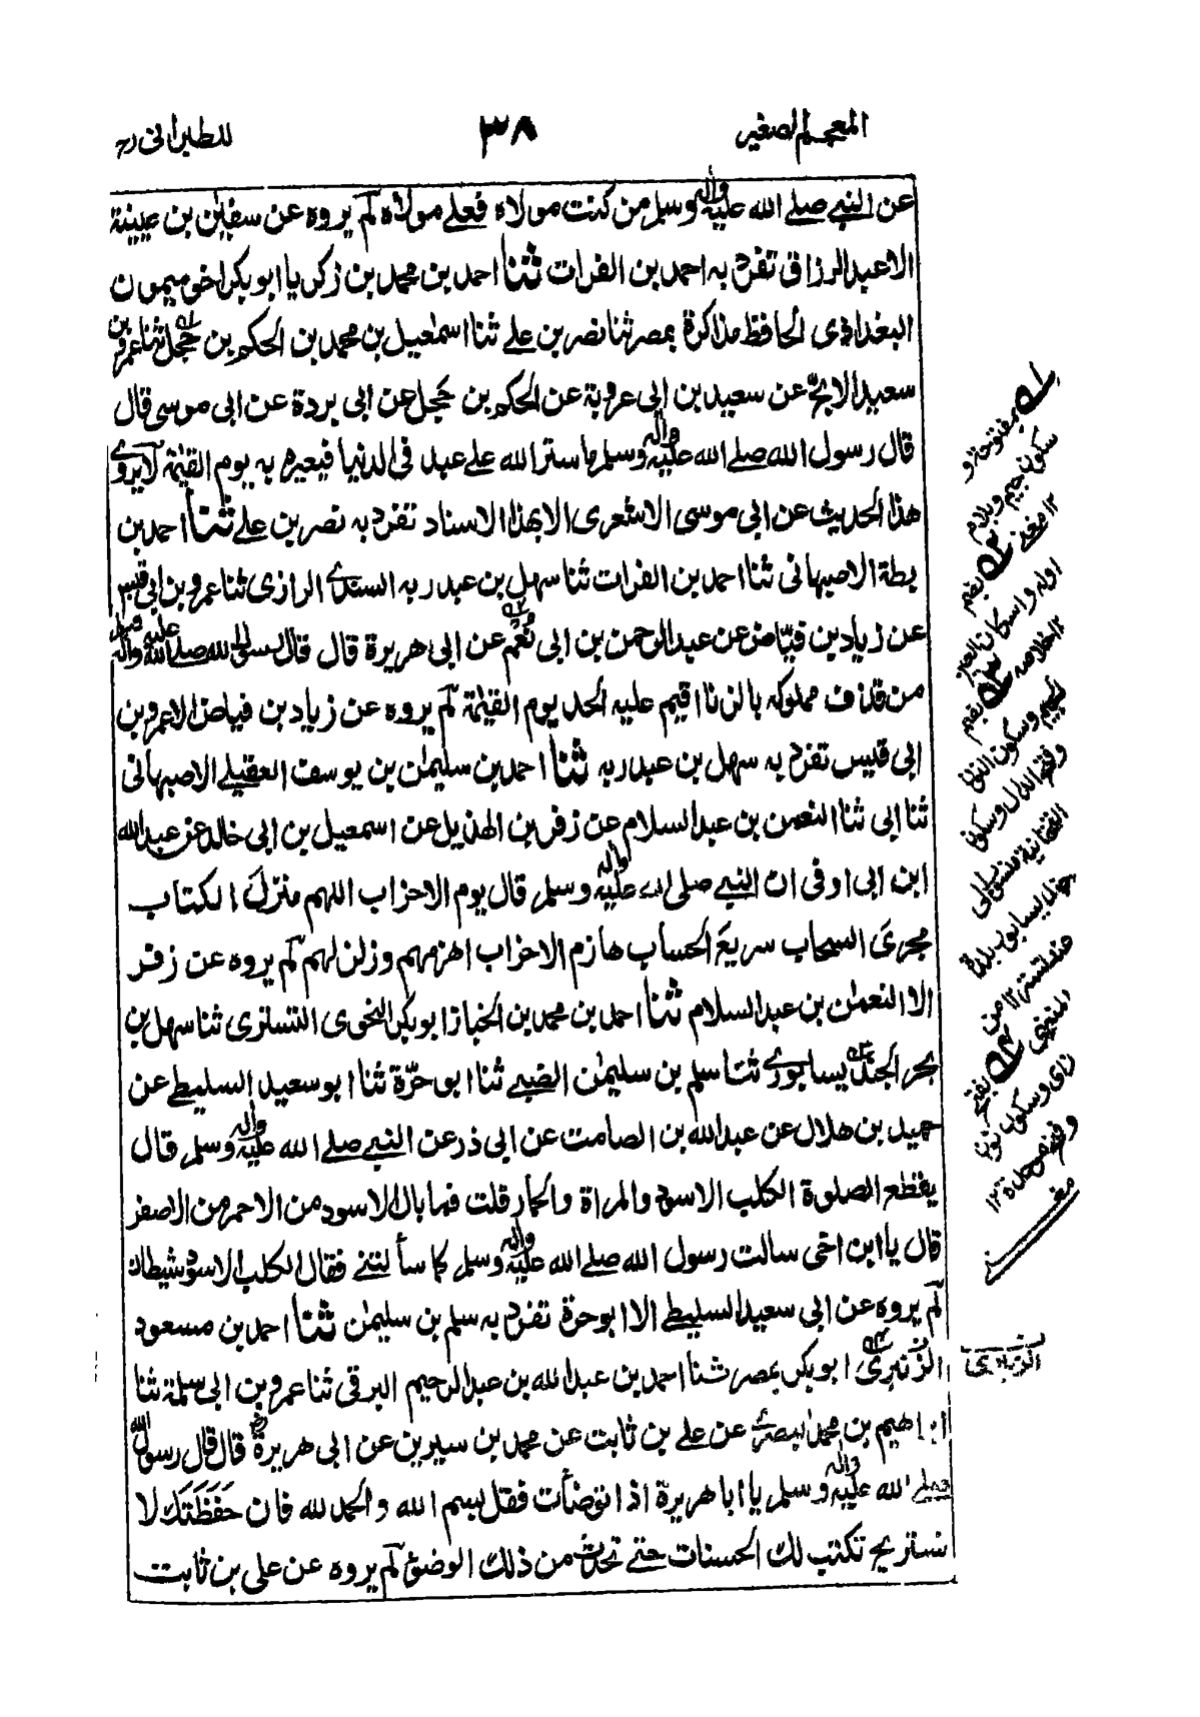 المعجم الصغير ٣٨ للطبرانى رح
عن النبى صلى الله عليه واله وسلم من كنت مولاه فعلى مولاه لم يروه عن سفين بن عيينة
الا عبد الرزاق تفرد به احمد بن الفرات ثنا احمد بن محمد بن زكريا ابو بكر اخو ميمون
البغدادى الحافظ مذاكرة بمصر ثنا نصر بن على ثنا اسمعيل بن محمد بن الحكم بن حجل ثنا عمر بن
سعيد الابح عن سعيد بن ابى عروبة عن الحكم بن حجل عن ابى بردة عن ابى موسى قال
قال رسول الله صلى الله عليه واله وسلم ما ستر الله على عبد فى الدنيا فيعيره به يوم القيمة لا يروى
هذا الحديث عن ابى موسى الاشعرى الا بهذا الاسناد تفرد به نصر بن على ثنا احمد بن
بطة الاصبهانى ثنا احمد بن الفرات ثنا سهل بن عبد ربه السندى الرازى ثنا عمرو بن ابى قيس
عن زياد بن فياض عن عبد الرحمن بن ابى نعم عن ابى هريرة قال قال رسول الله صلى الله عليه واله وسلم
من قذف مملوكه بالزنا اقيم عليه الحد يوم القيمة لم يروه عن زياد بن فياض الا عمرو بن
ابى قيس تفرد به سهل بن عبد ربه ثنا احمد بن سليمن بن يوسف العقيلى الاصبهانى
ثنا ابى ثنا النعمن بن عبد السلام عن زفر بن الهذيل عن اسمعيل بن ابى خالد عن عبد الله
ابن ابى اوفى ان النبى صلى الله عليه واله وسلم قال يوم الاحزاب اللهم منزل الكتاب
مجرى السحاب سريع الحساب هازم الاحزاب اهزمهم وزلزلهم لم يروه عن زفر
الا النعمن بن عبد السلام ثنا احمد بن محمد بن الخباز ابو بكر النحوى التسترى ثنا سهل بن
بحر الجنديسابورى ثنا سلم بن سليمن الضبى ثنا ابو حرة ثنا ابو سعيد السليطى عن
حميد بن هلال عن عبد الله بن الصامت عن ابى ذر عن النبى صلى الله عليه واله وسلم قال
يقطع الصلوة الكلب الاسود والمراة والحمار قلت فما بال الاسود من الاحمر من الاصفر
قال يا ابن اخى سالت رسول الله صلى الله عليه واله وسلم كما سألتنى فقال الكلب الاسود شيطان
لم يروه عن ابى سعيد السليطى الا ابو حرة تفرد به سلم بن سليمن ثنا احمد بن مسعود
الزنبرى ابو بكر بمصر ثنا احمد بن عبد الله بن عبد الرحيم البرقى ثنا عمرو بن ابى سلمة ثنا
ابراهيم بن محمد البصرى عن على بن ثابت عن محمد بن سيرين عن ابى هريرة قال قال رسول الله
صلى الله عليه واله وسلم يا ابا هريرة اذا توضأت فقل بسم الله والحمد لله فان حفظتك لا
تستريح تكتب لك الحسنات حتى تحدث من ذلك الوضوء لم يروه عن على بن ثابت
بمفتوحة و
سكون جيم وبلام
١٢ مغنى
بضم
اوله واسكان العين
١٢ خلاصه
بضم
جيم وسكون النون
وفتح الدال وسكون
التحتانية منسوب الى
جنديسابور بلدة
١٢ من
المغنى
بفتح
زاى وسكون نون
وفتح موحدة ١٢
مغنى